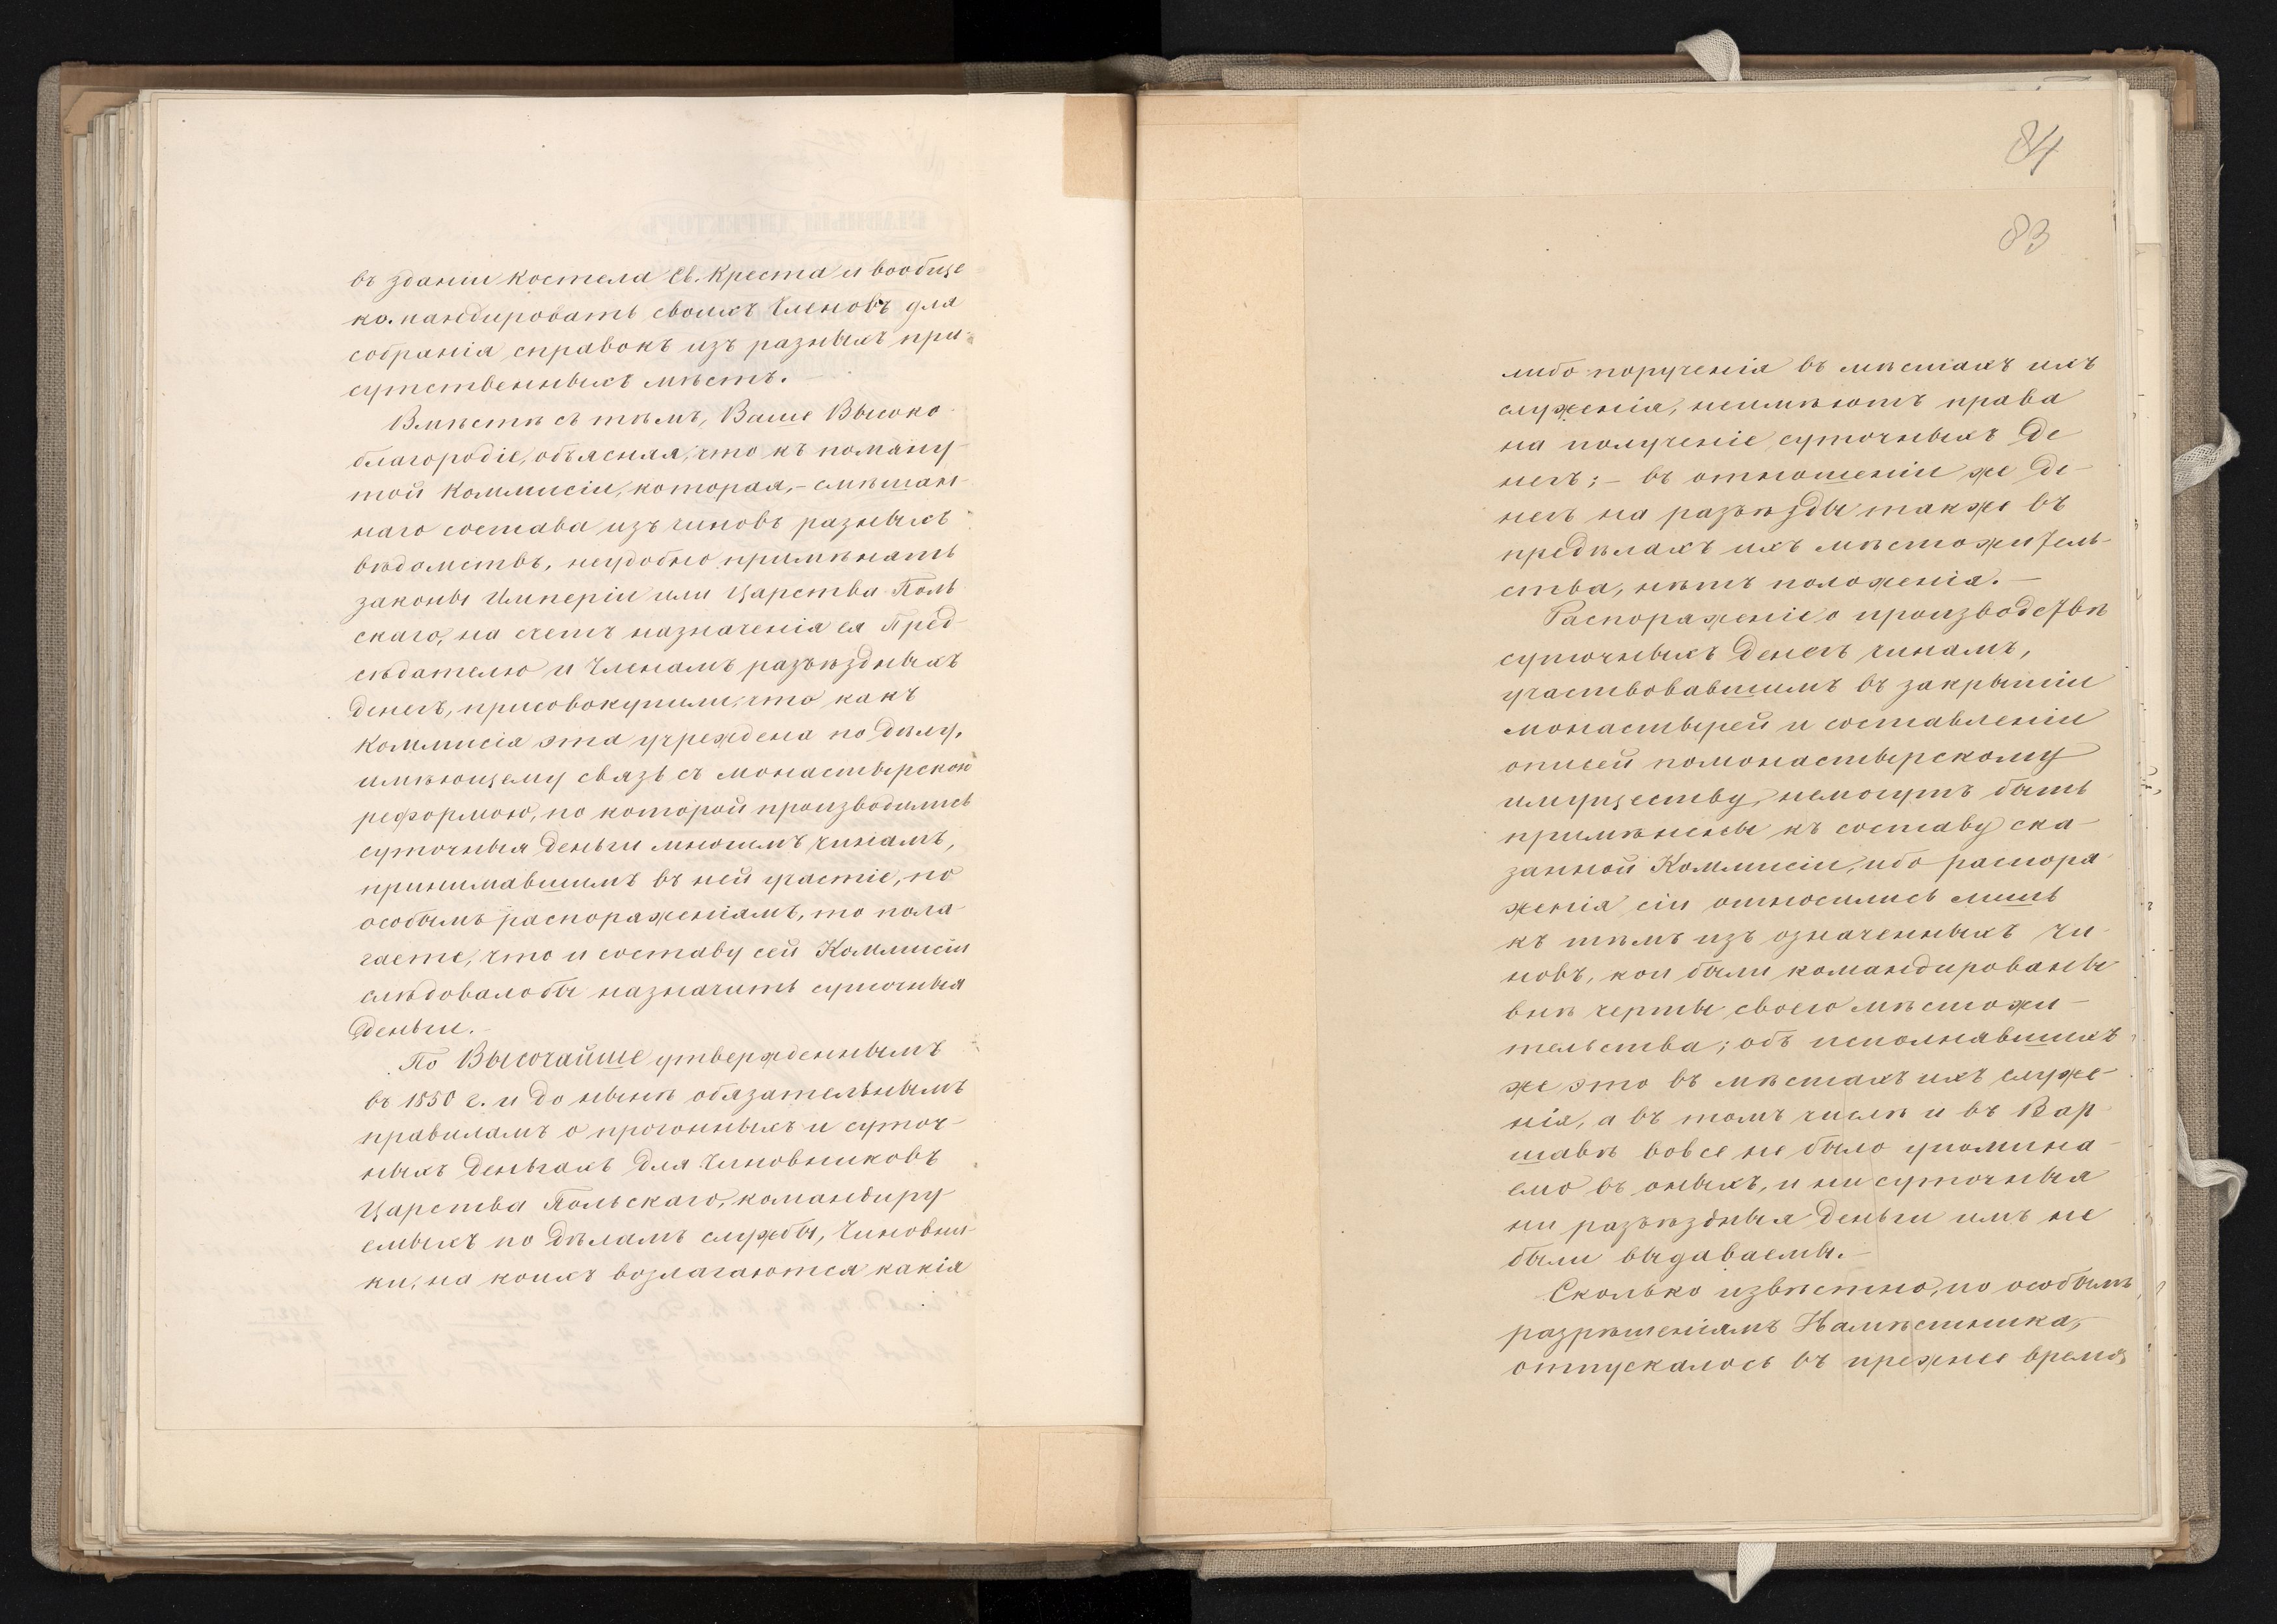 въ зданіи костела Св. Креста и вообще
командировать своихъ Членовъ для
собранія справокъ изъ разныхъ при-
сутственныхъ мѣстъ.
Вмѣстѣ съ тѣмъ, Ваше Высоко-
благородіе, объясняя, что къ помяну-
той Коммисіи, которая, - смѣшан-
наго состава изъ чиновъ разныхъ
вѣдомствъ, неудобно примѣнять
законы Имперіи или Царства Поль-
скаго, на счетъ назначенія ея Пред-
сѣдателю и Членамъ разъѣздныхъ
денегъ, присовокупили, что какъ
Коммисія эта учреждена по дѣлу,
имѣющему связь съ монастырскою
реформою, по которой производились
суточныя деньги многимъ чинамъ,
принимавшимъ въ ней участіе, по
особымъ распоряженіямъ, то пола-
гаете, что и составу сей Коммисіи
слѣдовалобы назначить суточныя
деньги.-
По Высочайше утвержденнымъ
въ 1850 г. и до нынѣ обязательнымъ
правиламъ о прогонныхъ и суточ-
ныхъ деньгахъ для Чиновниковъ
Царства Польскаго, командиру-
емыхъ по дѣламъ службы, Чиновни-
ки, на коихъ возлагаются какія
84
83
либо порученія въ мѣстахъ ихъ
служенія, неимѣютъ права
на полученіе суточныхъ де
негъ; - въ отношеніи же де-
негъ на разъѣзды также въ
предѣлахъ ихъ мѣстожитель-
ства, нѣтъ положенія.-
Распоряженіе о производствѣ
суточныхъ денегъ чинамъ,
участвовавшимъ въ закрытіи
монастырей и составленіи
описей помонастырскому
имуществу, немогутъ быть
примѣнены къ составу ска-
занной Коммисіи, ибо распоря-
женія сіи относились лишь
къ тѣмъ изъ означенныхъ чи-
новъ, кои были командированы
внѣ черты своего мѣстожи-
тельства; объ исполнявшихъ
же это въ мѣстахъ ихъ служе-
нія, а въ томъ числѣ и въ Вар-
шавѣ вовсе не было упомина-
емо въ оныхъ, и ни суточныя
ни разъѣздныя деньги имъ не
были выдаваемы.-
Сколько извѣстно, по особымъ
разрѣшеніямъ Намѣстника,
отпускалось въ прежнее время